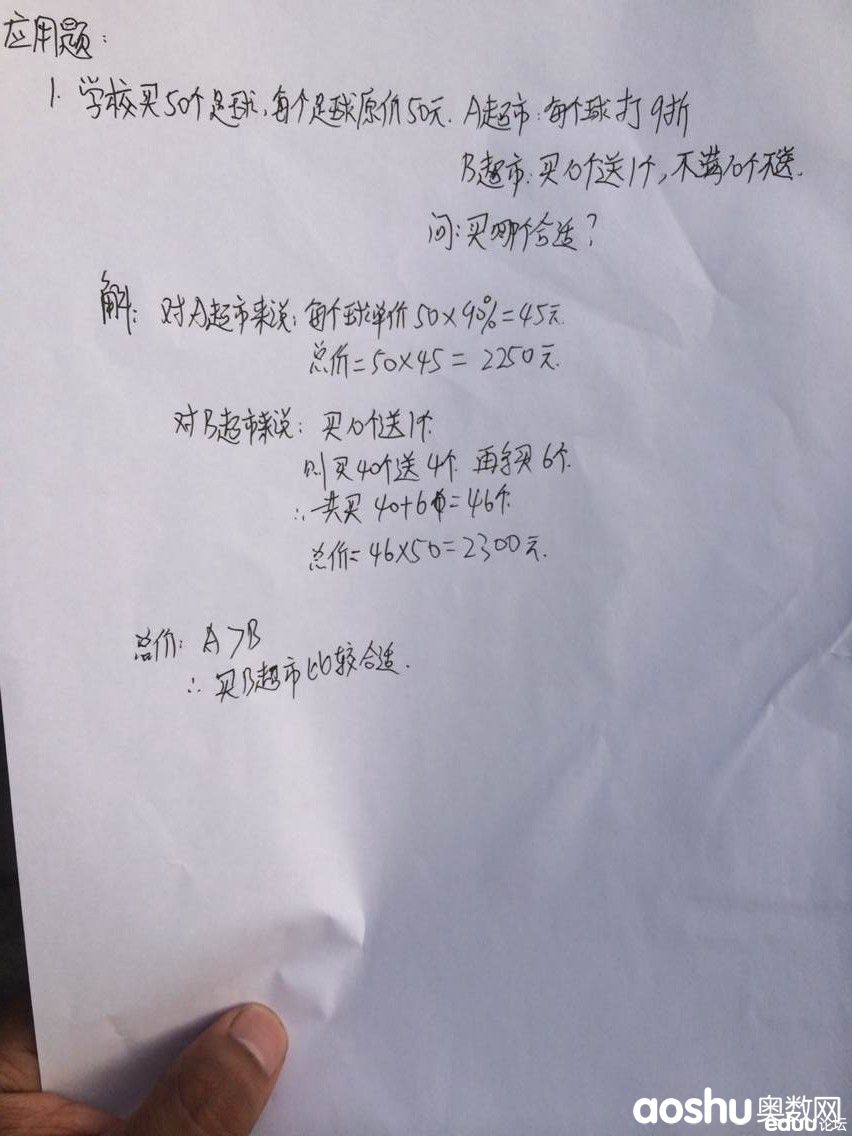 应用题:
1. 学校买50个足球,每个足球原价50元. A超市:每个球打9折
B超市:买10个送1个,不满10个不送.
问:买哪个合适?
解: 对A超市来说:每个球单价50×90%=45元.
总价=50×45=2250元.
对B超市来说: 买10个送1个.
则买40个送4个 再买6个.
∴共买 40+6个=46个.
总价=46×50=2300元.
总价: A>B
∴ 买B超市比较合适.
aoshu奥数网
eduu论坛